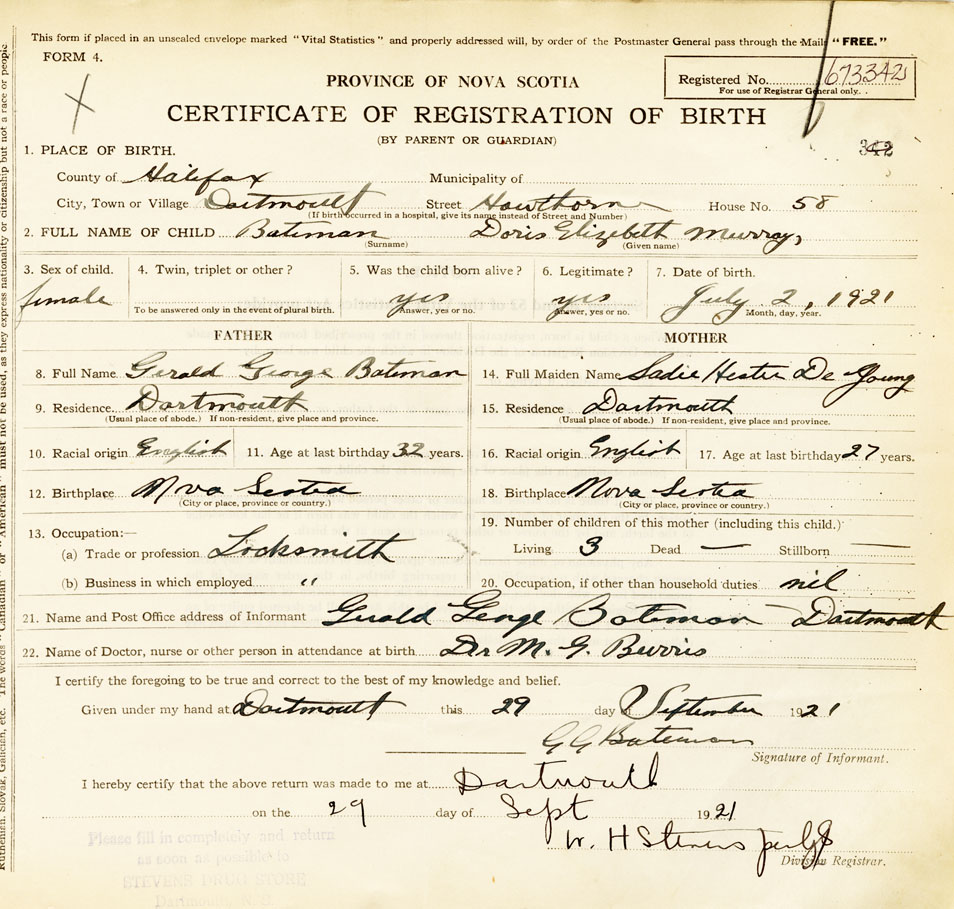 This form if placed in an unsealed envelope marked "Vital Statistics" and properly addressed will, by order of the Postmaster General pass through the Mails "FREE."
FORM 4.
PROVINCE OF NOVA SCOTIA
Registered No. 673342
For use of Registrar General only.
CERTIFICATE OF REGISTRATION OF BIRTH
(BY PARENT OR GUARDIAN)
342
1. PLACE OF BIRTH.
County of Halifax Municipality of
City, Town or Village Dartmouth Street Hawthorne House No. 58
(If birth occurred in a hospital, give its name instead of Street and Number)
2. FULL NAME OF CHILD Bateman Doris Elizabeth Murray,
(Surname) (Given name)
3. Sex of child. 4. Twin, triplet or other? 5. Was the child born alive? 6. Legitimate? 7. Date of birth.
female yes yes July 2, 1921
To be answered only in the event of plural birth. Answer, yes or no. Answer, yes or no. Month, day, year.
FATHER MOTHER
8. Full Name Gerald George Bateman 14. Full Maiden Name Sadie Hester De Young
9. Residence Dartmouth 15. Residence Dartmouth
(Usual place of abode.) If non-resident, give place and province. (Usual place of abode.) If non-resident, give place and province.
10. Racial origin English 11. Age at last birthday 32 years. 16. Racial origin English 17. Age at last birthday 27 years.
12. Birthplace Nova Scotia 18. Birthplace Nova Scotia
(City or place, province or country.) (City or place, province or country.)
13. Occupation:— 19. Number of children of this mother (including this child.)
(a) Trade or profession Locksmith Living 3 Dead — Stillborn —
(b) Business in which employed " 20. Occupation, if other than household duties nil
21. Name and Post Office address of Informant Gerald George Bateman Dartmouth
22. Name of Doctor, nurse or other person in attendance at birth. Dr M. G. Burris
I certify the foregoing to be true and correct to the best of my knowledge and belief.
Given under my hand at Dartmouth this 29 day of September 1921
G G Bateman
Signature of Informant.
I hereby certify that the above return was made to me at Dartmouth
on the 29 day of Sept 1921
W. H Stevens
Division Registrar.
Please fill in completely and return
as soon as possible to
STEVENS DRUG STORE
Dartmouth, N.S.
Ruthenian, Slovak, Galician, etc. The words "Canadian" or "American" must not be used, as they express nationality or citizenship but not a race or people